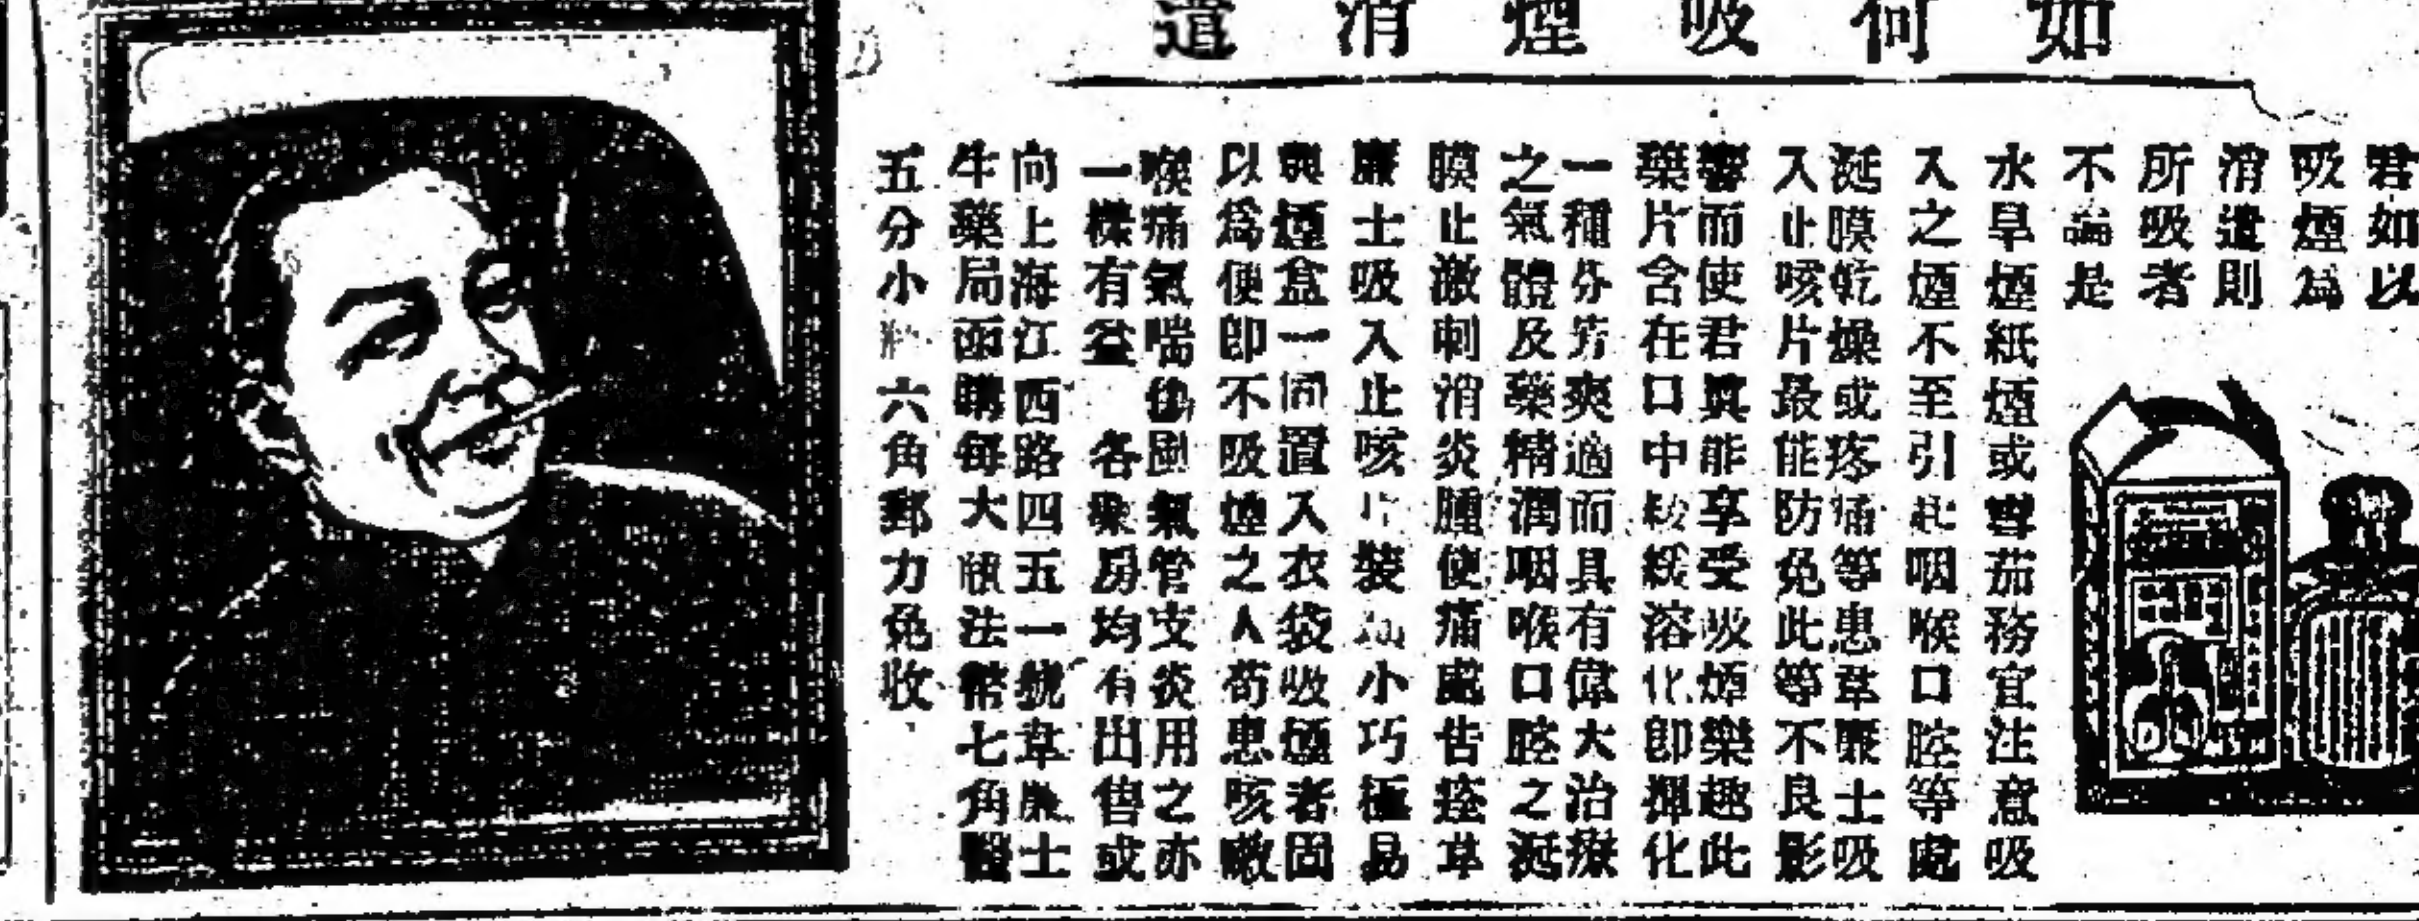 如何吸煙消遣
君如以
吸煙爲
消遣則
所吸者
不論是
水旱煙紙煙或雪茄務宜注意吸
入之煙不至引起咽喉口腔等處
涎膜乾燥或疼痛等患韋廉士吸
入止咳片最能防免此等不良影
響而使君眞能享受吸煙樂趣此
藥片含在口中緩緩溶化卽揮化
一種芬芳爽適而具有偉大治療
之氣體及藥精潤咽喉口腔之涎
膜止激刺消炎腫使痛處告痊韋
廉士吸入止咳片裝小巧極易
與煙盒一同置入衣袋吸煙者固
以爲便卽不吸煙之人苟患咳嗽
喉痛氣喘傷風氣管支炎用之亦
一樣有益 各藥房均有出售或
向上海江西路四五一號韋廉士
醫藥局函購每大瓶法幣七角
五分小瓶六角郵力免收